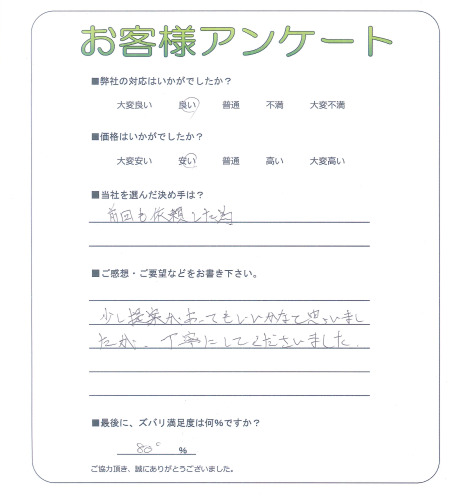 お客様アンケート
■弊社の対応はいかがでしたか？
大変良い 良い 普通 不満 大変不満
■価格はいかがでしたか？
大変安い 安い 普通 高い 大変高い
■当社を選んだ決め手は？
前回も依頼した為
■ご感想・ご要望などをお書き下さい。
少し提案があってもいいかなと思いまし
たが、丁寧にしてくださいました。
■最後に、ズバリ満足度は何%ですか？
80 %
ご協力頂き、誠にありがとうございました。